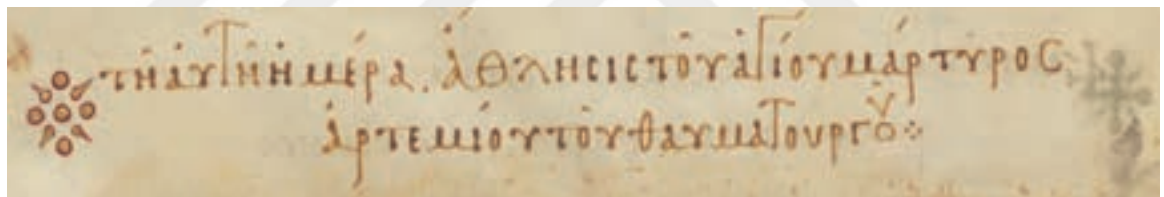 τῆ αὐτῆ ἡμέρα. ἄθλησις τοῦ ἁγίου μάρτυρος
ἀρτεμίου τοῦ θαυματουργοῦ